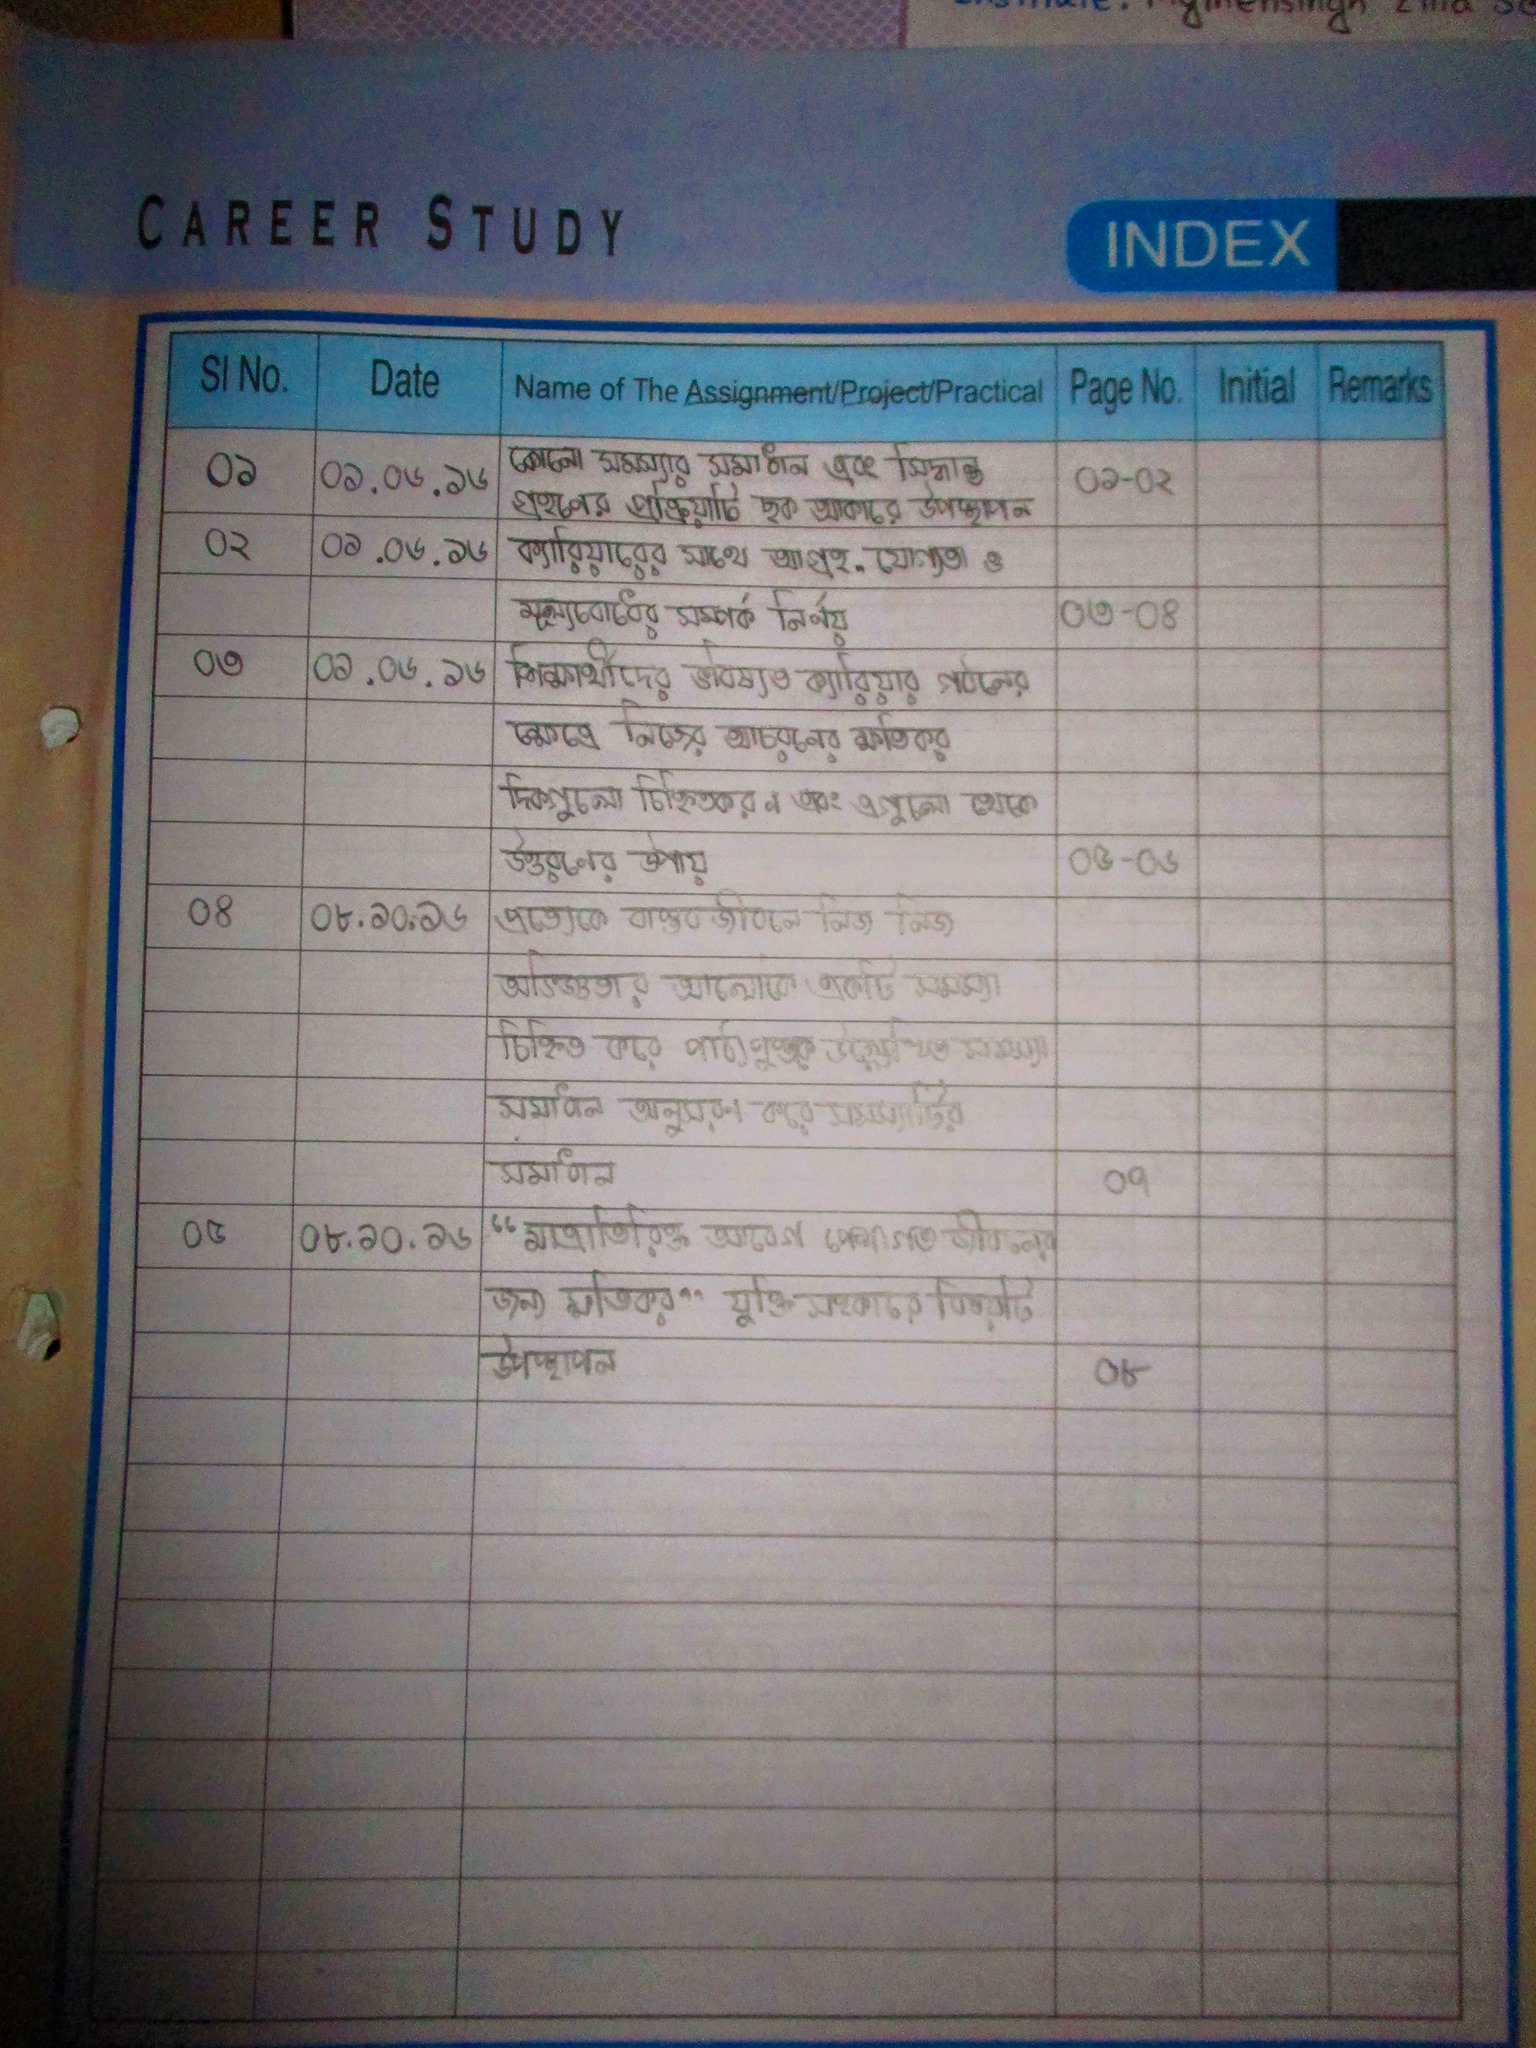 Institute: Mymensingh Zilla
CAREER STUDY
INDEX
Sl No. Date Name of The Assignment/Project/Practical Page No. Initial Remarks
০১ ০১.০৬.১৬ কোনো সমস্যার সমাধান এবং সিদ্ধান্ত ০১-০২
গ্রহণের প্রক্রিয়াটি ছক আকারে উপস্থাপন
০২ ০১.০৬.১৬ ক্যারিয়ারের সাথে আগ্রহ, যোগ্যতা ও
মূল্যবোধের সম্পর্ক নির্ণয় ০৩-০৪
০৩ ০১.০৬.১৬ শিক্ষার্থীদের ভবিষ্যত ক্যারিয়ার গঠনের
ক্ষেত্রে নিজের আচরনের ক্ষতিকর
দিকগুলো চিহ্নিতকরণ এবং এগুলো থেকে
উত্তরনের উপায় ০৫-০৬
০৪ ০৮.১০.১৬ প্রত্যেকে বাস্তব জীবনে নিজ নিজ
অভিজ্ঞতার আলোকে একটি সমস্যা
চিহ্নিত করে পাঠ্যপুস্তকে উল্লেখিত সমস্যা
সমাধান অনুসরণ করে সমস্যাটির
সমাধান ০৭
০৫ ০৮.১০.১৬ "মাত্রাতিরিক্ত আবেগ পেশাগত জীবনের
জন্য ক্ষতিকর" যুক্তি সহকারে বিষয়টি
উপস্থাপন ০৮